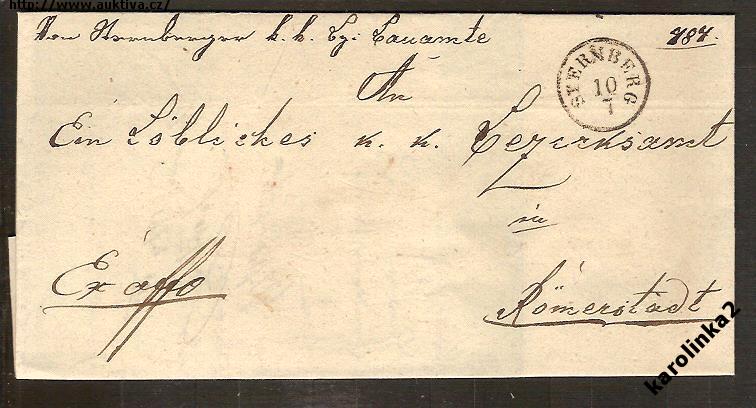 http://www.auktiva.cz/
Von Sternberger k. k. Bauamte 787.
STERNBERG
10
7
An
Ein Löbliches k. k. Bezirksamt
in
Ex offo
Römerstadt
karolinka2